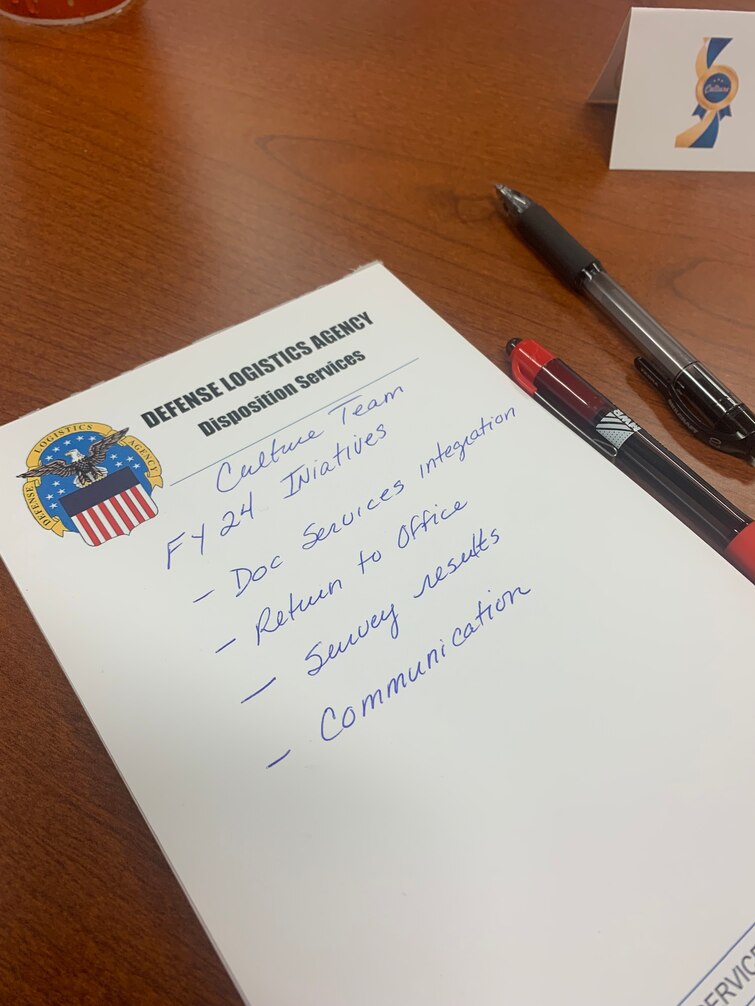 Culture
DEFENSE LOGISTICS AGENCY
Disposition Services
DEFENSE LOGISTICS AGENCY
Culture Team
FY24 INiatives
- Doc Services integration
- Return to Office
- Survey results
- Communication
MWR